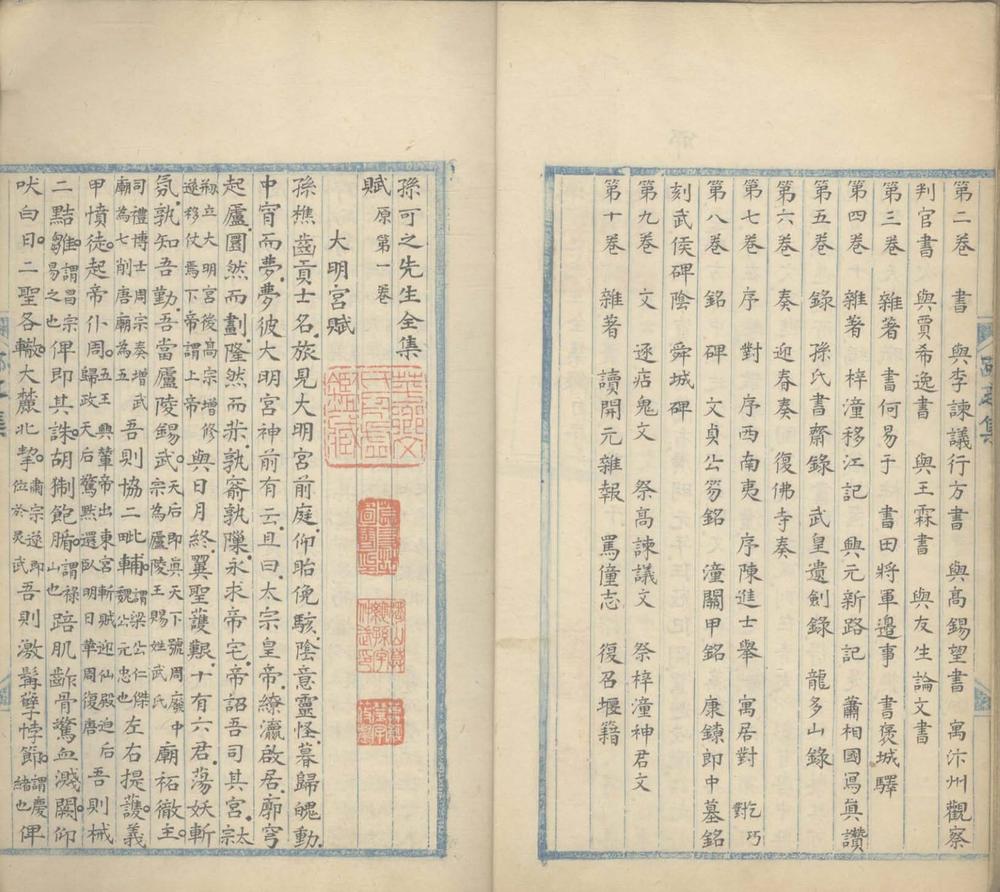 第二卷 書 與李諫議行方書 與高錫望書 寓汴州觀察
判官書 與賈希逸書 與王霖書 與友生論文書
第三卷 雜著 書何易于 書田將軍邊事 書褒城驛
第四卷 雜著 梓潼移江記 興元新路記 蕭相國寫真讚
第五卷 錄 孫氏書齋錄 武皇遺劍錄 龍多山錄
第六卷 奏 迎春奏 復佛寺奏
第七卷 序 對 序西南夷 序陳進士舉 寓居對 乞巧對
第八卷 銘 碑 文貞公笏銘 潼關甲銘 康鐐郎中墓銘
刻武侯碑陰 舜城碑
第九卷 文 逐痁鬼文 祭高諫議文 祭梓潼神君文
第十卷 雜著 讀開元雜報 罵僮志 復召堰籍
孫可之先生全集
賦 原第一卷
大明宮賦
孫樵齒貢士名旅見大明宮前庭仰眙俛駭陰意靈怪暮歸魄動
中宵而夢夢彼大明宮神前有云且曰太宗皇帝繚瀛啟居廓穹
起廬圜然而劃隆然而赤孰窬孰隟永求帝宅帝詔吾司其宮宗
翔立大明宮後高宗增修遂移仗焉下帝謂上帝與日月終翼聖護艱十有六君蕩妖斬
氛孰知吾勤吾當廬陵錫武天后即真天下號周廢中宗為廬陵王賜姓武氏廟祏徹主
司禮博士周宗奏增武廟為七削唐廟為五吾則協二毗輔謂梁公仁傑魏公元忠也左右提護義
甲憤徒起帝仆周五王興輦帝出東宮斬賊迎仙殿迫后歸政天后驚黙還臥明日華周復唐吾則械
二黠雛謂昌宗易之也俾即其誅胡猘飽腯謂祿山也踣肌齰骨驚血濺闕仰
吠白日二聖各轍大麓北挈肅宗遂即位於灵武吾則激髯孽悖節謂慶緒也俾